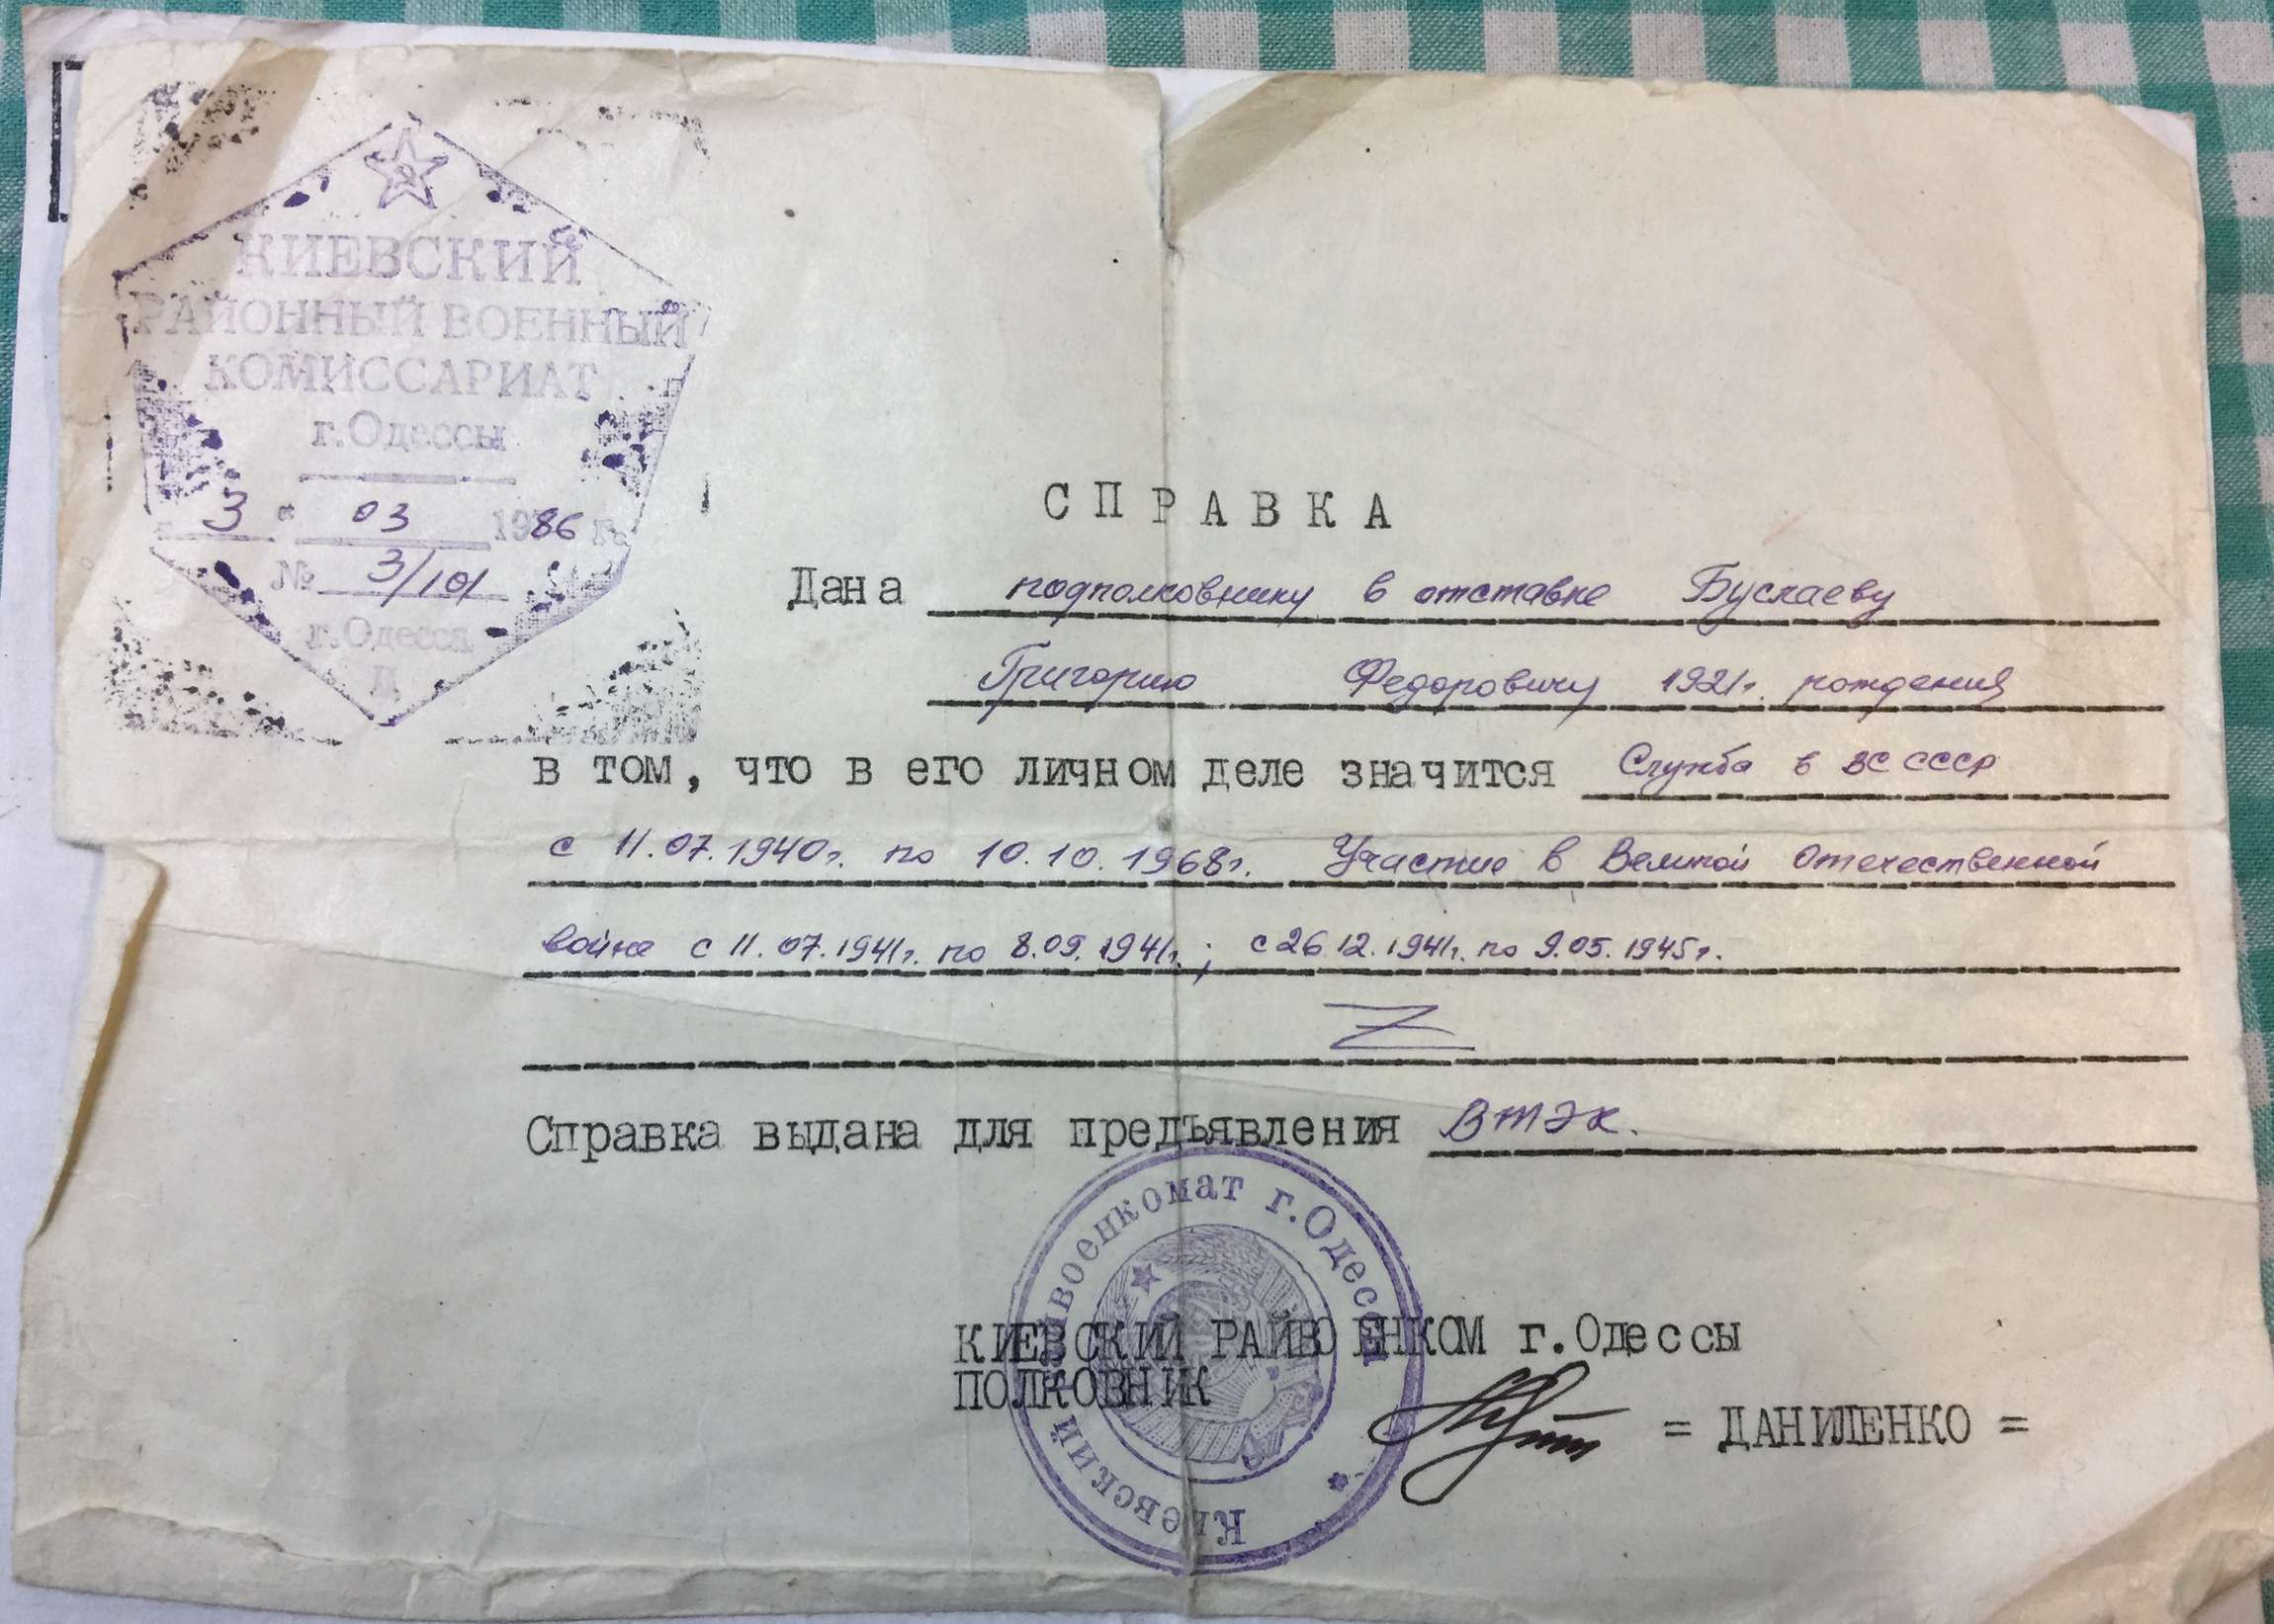 КИЕВСКИЙ
РАЙОННЫЙ ВОЕННЫЙ
КОМИССАРИАТ
г.Одессы
" 3 " 03 1986 г.
№ 3/101
г.Одесса
СПРАВКА
Дана подполковнику в отставке Буслаеву
Григорию Федоровичу 1921г. рождения
в том, что в его личном деле значится Служба в ВС СССР
с 11.07.1940г. по 10.10.1968г. Участие в Великой Отечественной
войне с 11.07.1941г. по 8.09.1941г.; с 26 12.1941г. по 9.05.1945г.
Справка выдана для предъявления ВТЭК.
Киевский райвоенкомат г.Одессы
КИЕВСКИЙ РАЙВОЕНКОМ г.Одессы
ПОЛКОВНИК
= ДАНИЛЕНКО =